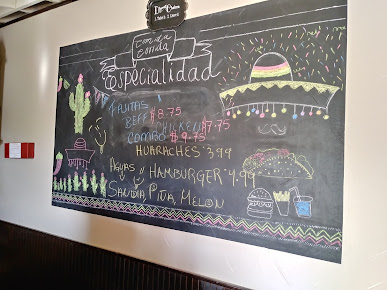 Comida
Fonda
Especialidad
FAJITAS
BEEF $8.75
CHICKEN $7.75
COMBO $9.75
HUARACHES $3.99
AGUAS y HAMBURGER $4.99
SANDIA, PIÑA, MELON